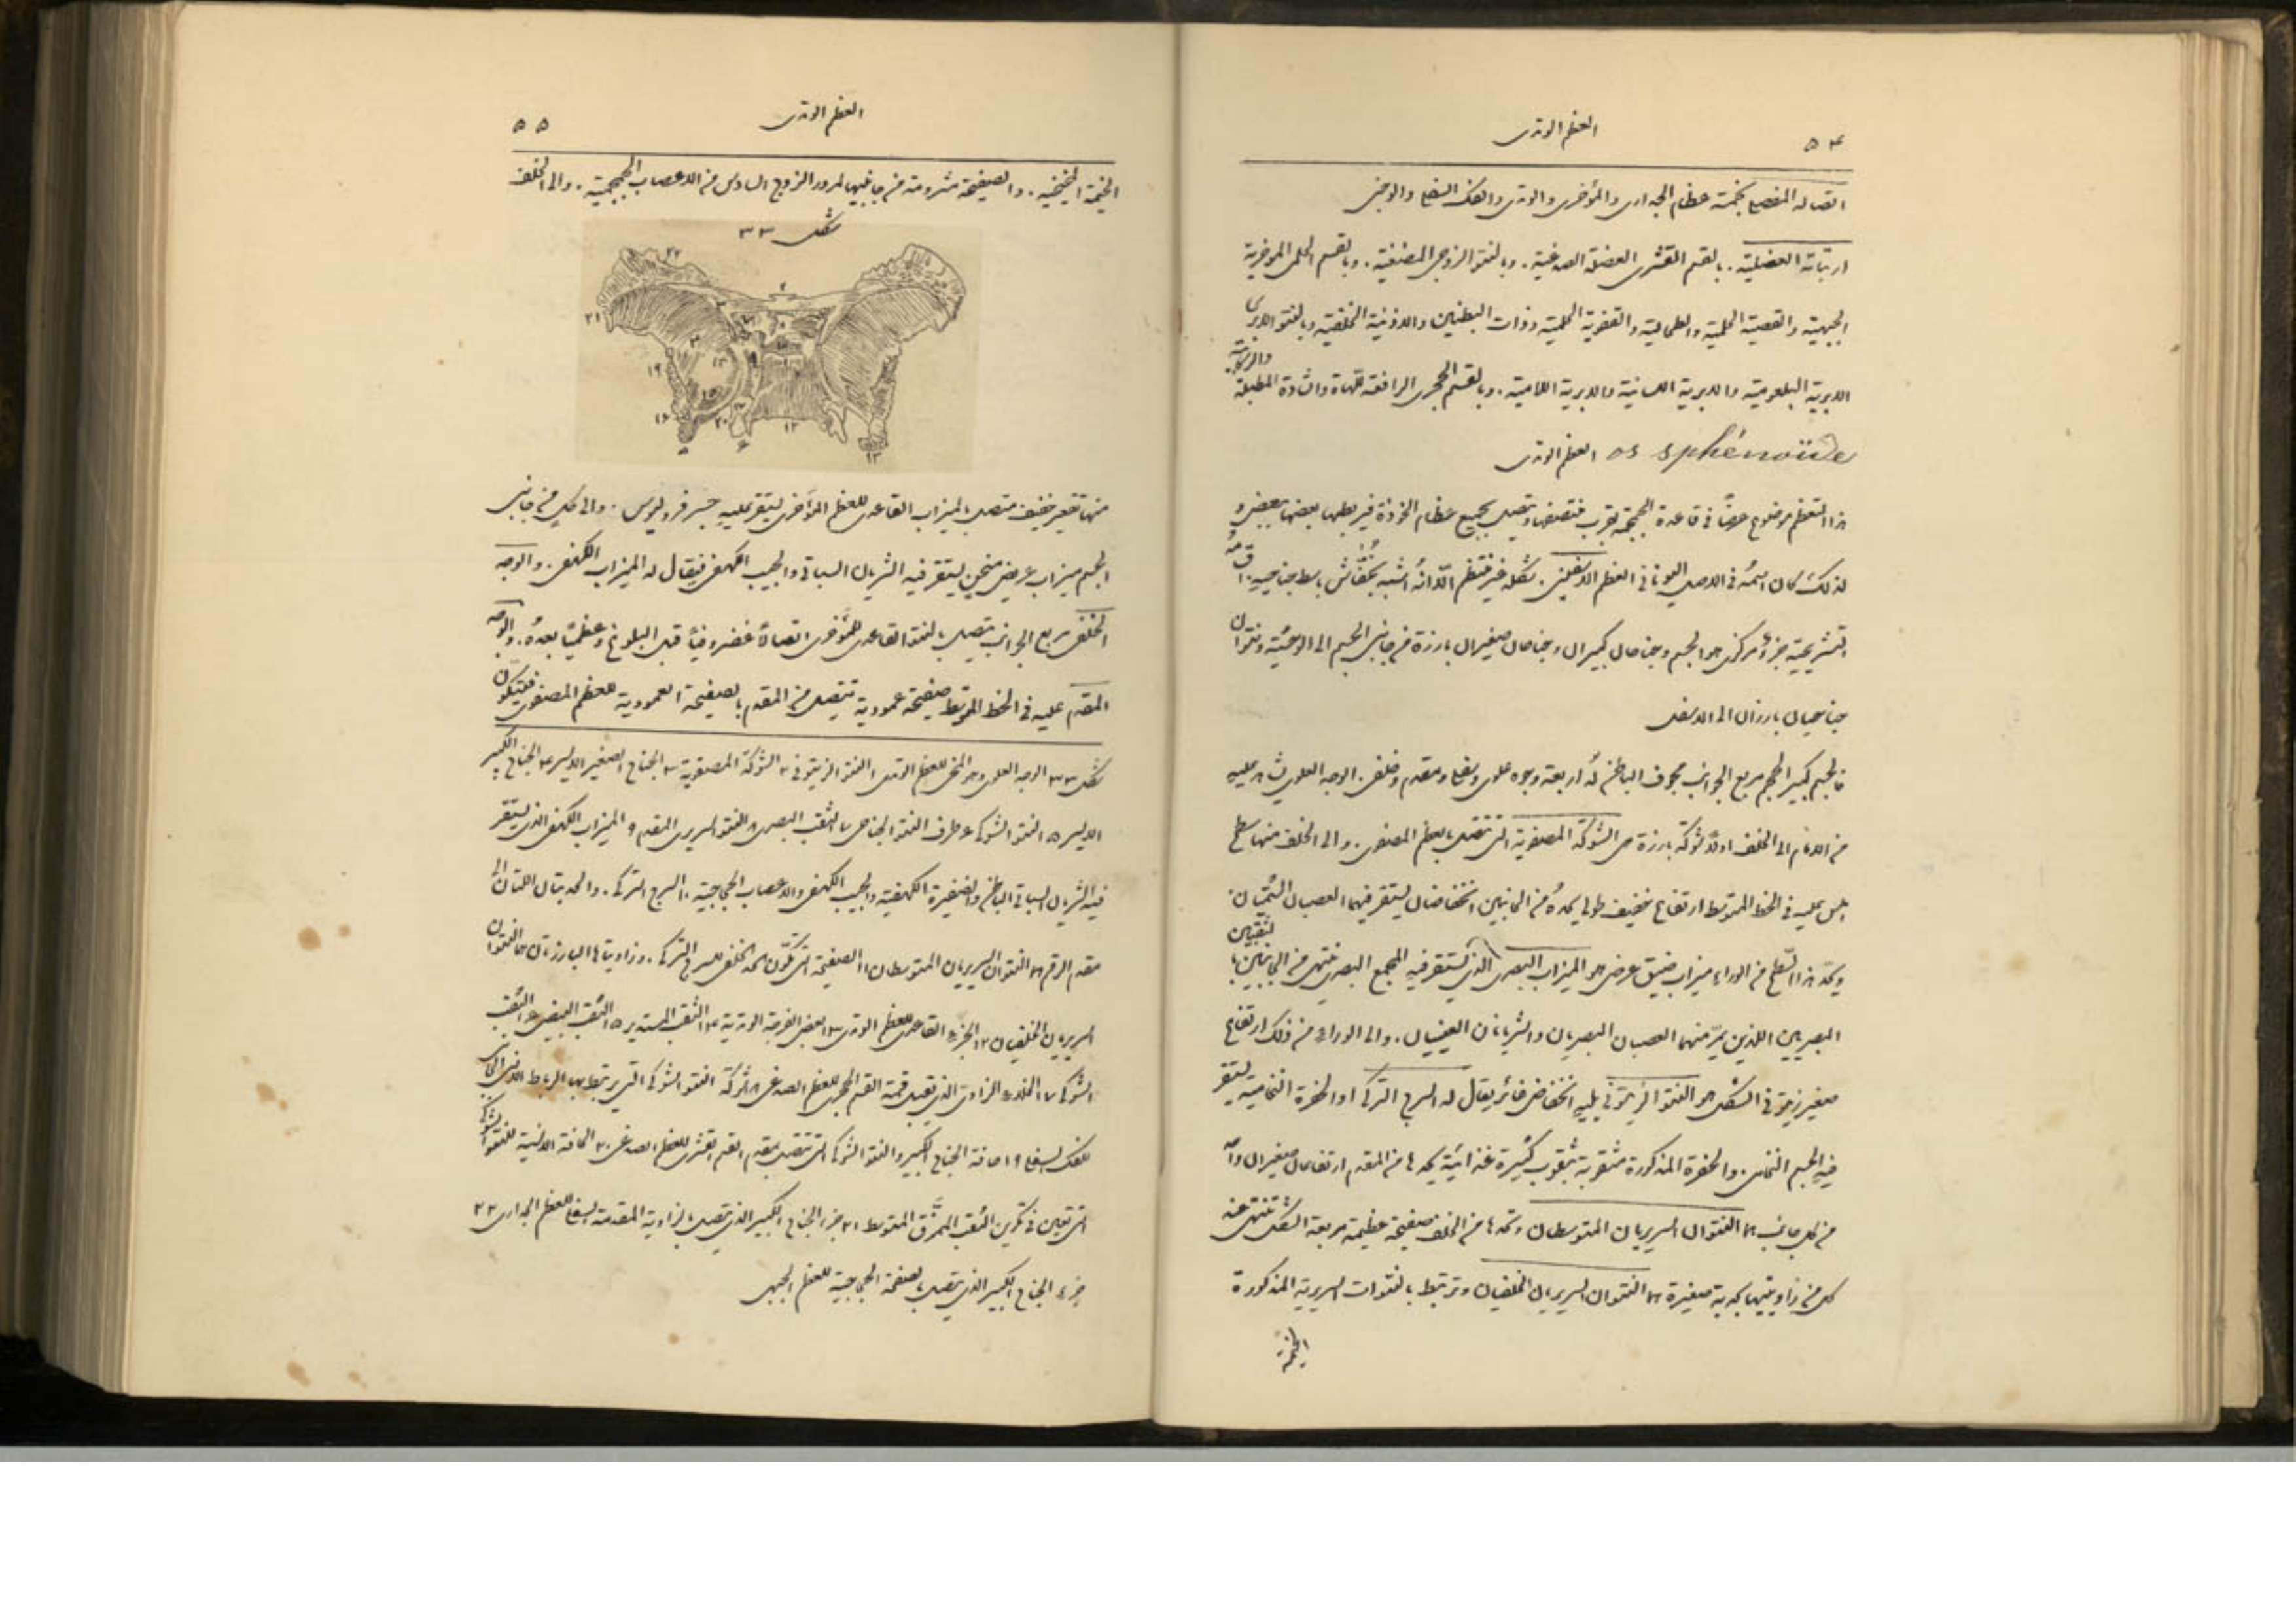 ٥٤
العظم الوتدى
اتصاله المفصلى بخمسة عظام الجدارى والمؤخرى والوتدى والفك السفلى والوجنى
ارتباطاته العضلية. بالقسم القشرى العضلة الصدغية. وبالنتو الزوجى المضغية. وبالقسم الحلمى الموخرية
الجبهية والقصية الحلمية والطحالية والقفوية الحلمية وذات البطنين والاذنية الخلفية وبالنتو الابرى
الابرية البلعومية والابرية اللسانية والابرية اللامية. وبالقسم الحجرى الرافعة للهاة والشادة للطبلة والركابية
os sphénoïde العظم الوتدى
هذا العظم موضوع عرضًا فى قاعدة الجمجمة بقرب منتصفها ويتصل بجميع عظام الخوذة فيربطها بعضها ببعض و
لذلك كان اسمهُ فى الاصل اليونانى العظم الاسفينى. شكله غير منتظم الّا انهُ اشبه بخفّاش باسط جناحيهِ. اقسامهُ
التشريحية جزءٌ مركزى هو الجسم وجناحان كبيران وجناحان صغيران بارزة من جانبى الجسم الى الوحشية ونتوان
جناحيان بارزان الى الاسفل
فالجسم كبير الحجم مربع الجوانب مجوف الباطن لهُ اربعة وجوه علوى وسفلى ومقدم وخلفى. الوجه العلوى يشاهد عليهِ
من الامام الى الخلف اولًا شوكة بارزة هى الشوكة المصفوية التى تتصل بالعظم المصفوى. والى الخلف منها سطح
املس عليه فى الخط المتوسط ارتفاع خفيف طولى يحدهُ من الجانبين انخفاضان يستقر فيهما العصبان الشميان.
ويحدّ هذا السطح من الوراء ميزاب ضيق عرضى هو الميزاب البصرى الذى يستقر فيهِ المجمع البصرى ينتهى من الجانبين بالثقبين
البصريين اللذين يمرّ منهما العصبان البصريان والشريانان العينيان. والى الوراء من ذلك ارتفاع
صغير زيتونى الشكل هو النتو الزيتونى يليهِ انخفاض غائر يقال له السرج التركى او الحفرة النخامية يستقر
فيهِ الجسم النخامى. والحفرة المذكورة مثقوبة بثقوب كثيرة غذائية يحدها من المقدم ارتفاعان صغيران واحد
من كل جانب هما النتوان السريريان المتوسطان وتحدها من الخلف صفيحة عظيمة مربعة الشكل تنتهى عند
كل من زاويتيها بحدبة صغيرة هما النتوان السريريان الخلفيان وترتبط بالنتوات السريرية المذكورة
الخيمة
العظم الوتدى
٥٥
الخيمة المخيخية. والصفيحة مشرومة من جانبيها لمرور الزوج السادس من الاعصاب الجمجمية. والى الخلف
شكل ٣٣
منها تقعير خفيف متصل بالميزاب القاعدى للعظم المؤخرى يستقر عليهِ جسر فروليوس. والى كلٍ من جانبى
الجسم ميزاب عريض منحنٍ يستقر فيه الشريان السباتى والجيب الكهفى فيقال له الميزاب الكهفى. والوجه
الخلفى مربع الجوانب يتصل بالنتو القاعدى للمؤخرى اتصالًا غضروفيًا قبل البلوغ وعظميًا بعدهُ. والوجه
المقدم عليه فى الخط المتوسط صفيحة عمودية تتصل من المقدم بالصفيحة العمودية للعظم المصفوى فتتكون
شكل ٣٣ الوجه العلوى وهو المخى للعظم الوتدى ١ النتو الزيتونى ٢ الشوكة المصفوية ٣ الجناح الصغير الايسر ٤ الجناح الكبير
الايسر ٥ النتو الشوكى ٦ طرف النتو الجناحى ٧ الثقب البصرى ٨ النتو السريرى المقدم ٩ الميزاب الكهفى الذى يستقر
فيه الشريان السباتى الباطن والضفيرة الكهفية والجيب الكهفى والاعصاب الحجاجية ١٠ السرج التركى. والحدبتان اللتان الى
مقدم الرقم هما النتوان السريريان المتوسطان ١١ الصفيحة التى تكوّن الحد الخلفى للسرج التركى. وزاويتاها البارزتان هما النتوان
السريريان الخلفيان ١٢ الجزء القاعدى للعظم الوتدى ١٣ بعض الفرجة الوتدية ١٤ الثقب المستدير ١٥ الثقب البيضى ١٦ الثقب
الشوكى ١٧ الجزء الزاوى الذى يقبل قمة القسم الحجرى للعظم الصدغى ١٨ شوكة النتو الشوكى التى يرتبط بها الرباط الانسى الجانبى
للفك السفلى ١٩ حافة الجناح الكبير والنتو الشوكى التى تتصل بمقدم القسم القشرى للعظم الصدغى ٢٠ الحافة الانسية للنتو الشوكى
التى تعين فى تكوين الثقب الممزق المتوسط ٢١ جزء الجناح الكبير الذى يتصل بالزاوية المقدمة السفلى للعظم الجدارى ٢٢
جزء الجناح الكبير الذى يتصل بالصفيحة الحجاجية للعظم الجبهى